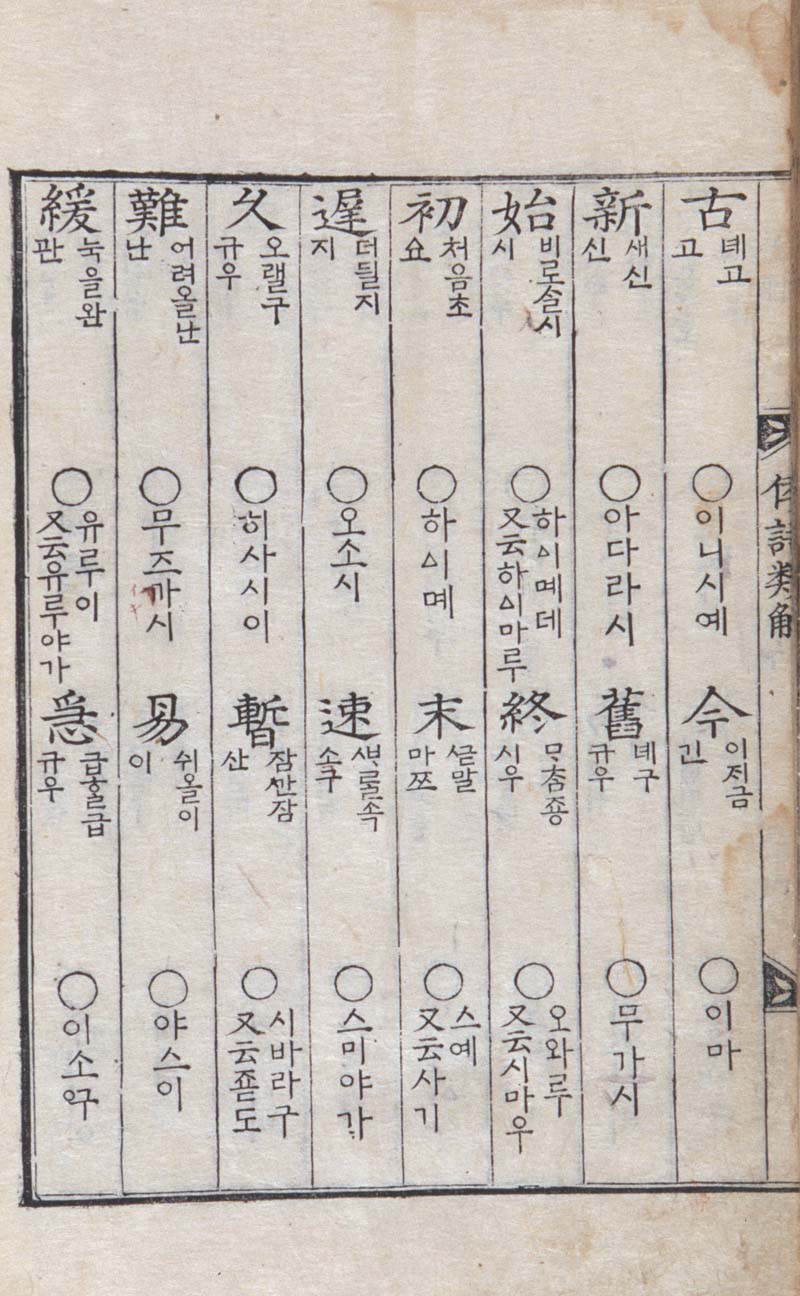 倭語類解
古
녜고
고
○이니시예
今
이저금
긴
○이마
新
새신
신
○아다라시
舊
녜구
규우
○무가시
始
비로솔시
시
○하ᅀᅵ몌데
又云하ᅀᅵ마루
終
ᄆᆞᄎᆞᆷ죵
시우
○오와루
又云시마우
初
처음초
쇼
○하ᅀᅵ몌
末
ᄭᅳᆮ말
마쯔
○스예
又云사기
遲
더딀지
지
○오소시
速
ᄲᆞᄅᆞᆯ속
소구
○스미야가
久
오랠구
규우
○히사시이
暫
잠ᄭᅡᆫ잠
산
○시바라구
又云죧도
難
어려올난
난
○무즈ᄭᅡ시
易
쉬올이
이
○야스이
緩
눅을완
관
○유루이
又云유루야가
急
급ᄒᆞᆯ급
규우
○이소